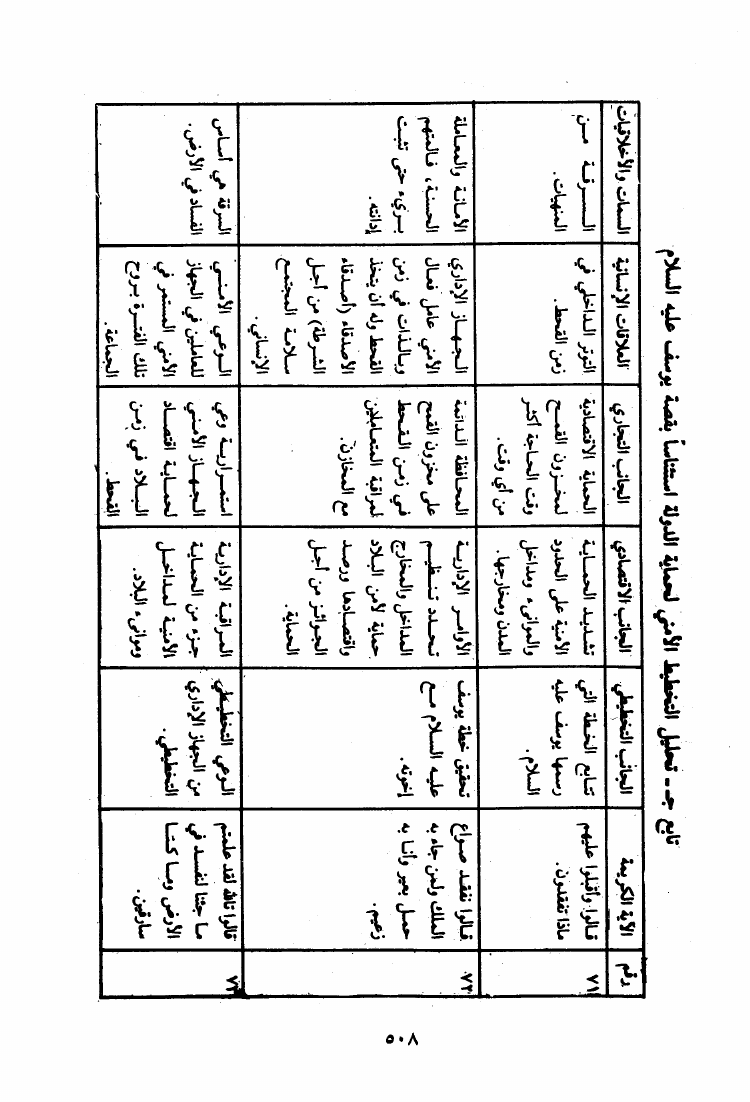 تابع جـ ـ تحليل التخطيط الأمني لحماية الدولة استئناساً بقصة يوسف عليه السلام
رقم
الآية الكريمة
الجانب التخطيطي
الجانب الاقتصادي
الجانب التجاري
العلاقات الإنسانية
السمات والأخلاقيات
٧١
قالوا وأقبلوا عليهم
ماذا تفقدون.
تتابع الخطة التي
رسمها يوسف عليه
السلام.
تشديد الحماية
الأمنية على الحدود
والموانىء ومداخل
المدن ومخارجها.
الحماية الاقتصادية
لمخزون القمح
وقت الحاجة أكثر
من أي وقت.
التوتر الداخلي في
زمن القحط.
السرقة من
المنهيات.
٧٢
قالوا نفقد صواع
الملك ولمن جاء به
حمل بعير وأنا به
زعيم.
تحقيق خطة يوسف
عليه السلام مع
إخوته.
الأوامر الإدارية
تحدد تنظيم
المداخل والمخارج
حماية لأمن البلاد
واقتصادها ورصد
الجوائز من أجل
الحماية.
المحافظة الدائمة
على مخزون القمح
في زمن القحط
لمراقبة المتعاملين
مع المخازن.
الجهاز الإداري
الأمني عامل فعال
وبالذات في زمن
القحط وله أن يتخذ
الأصدقاء (أصدقاء
الشرطة) من أجل
سلامة المجتمع
الإنساني.
الأمانة والمعاملة
الحسنة، فالمتهم
بريء حتى تثبت
إدانته.
٧٣
قالوا تالله لقد علمتم
ما جئنا لنفسد في
الأرض وما كنا
سارقين.
الوعي التخطيطي
من الجهاز الإداري
التخطيطي.
المراقبة الإدارية
جزء من الحماية
الأمنية لمداخل
وموانىء البلاد.
استمرارية وعي
الجهاز الأمني
لحماية اقتصاد
البلاد في زمن
القحط.
الوعي الأمني
للعاملين في الجهاز
الأمني المستمر في
تلك الفترة بروح
الجماعة.
السرقة هي أساس
الفساد في الأرض.
٥٠٨